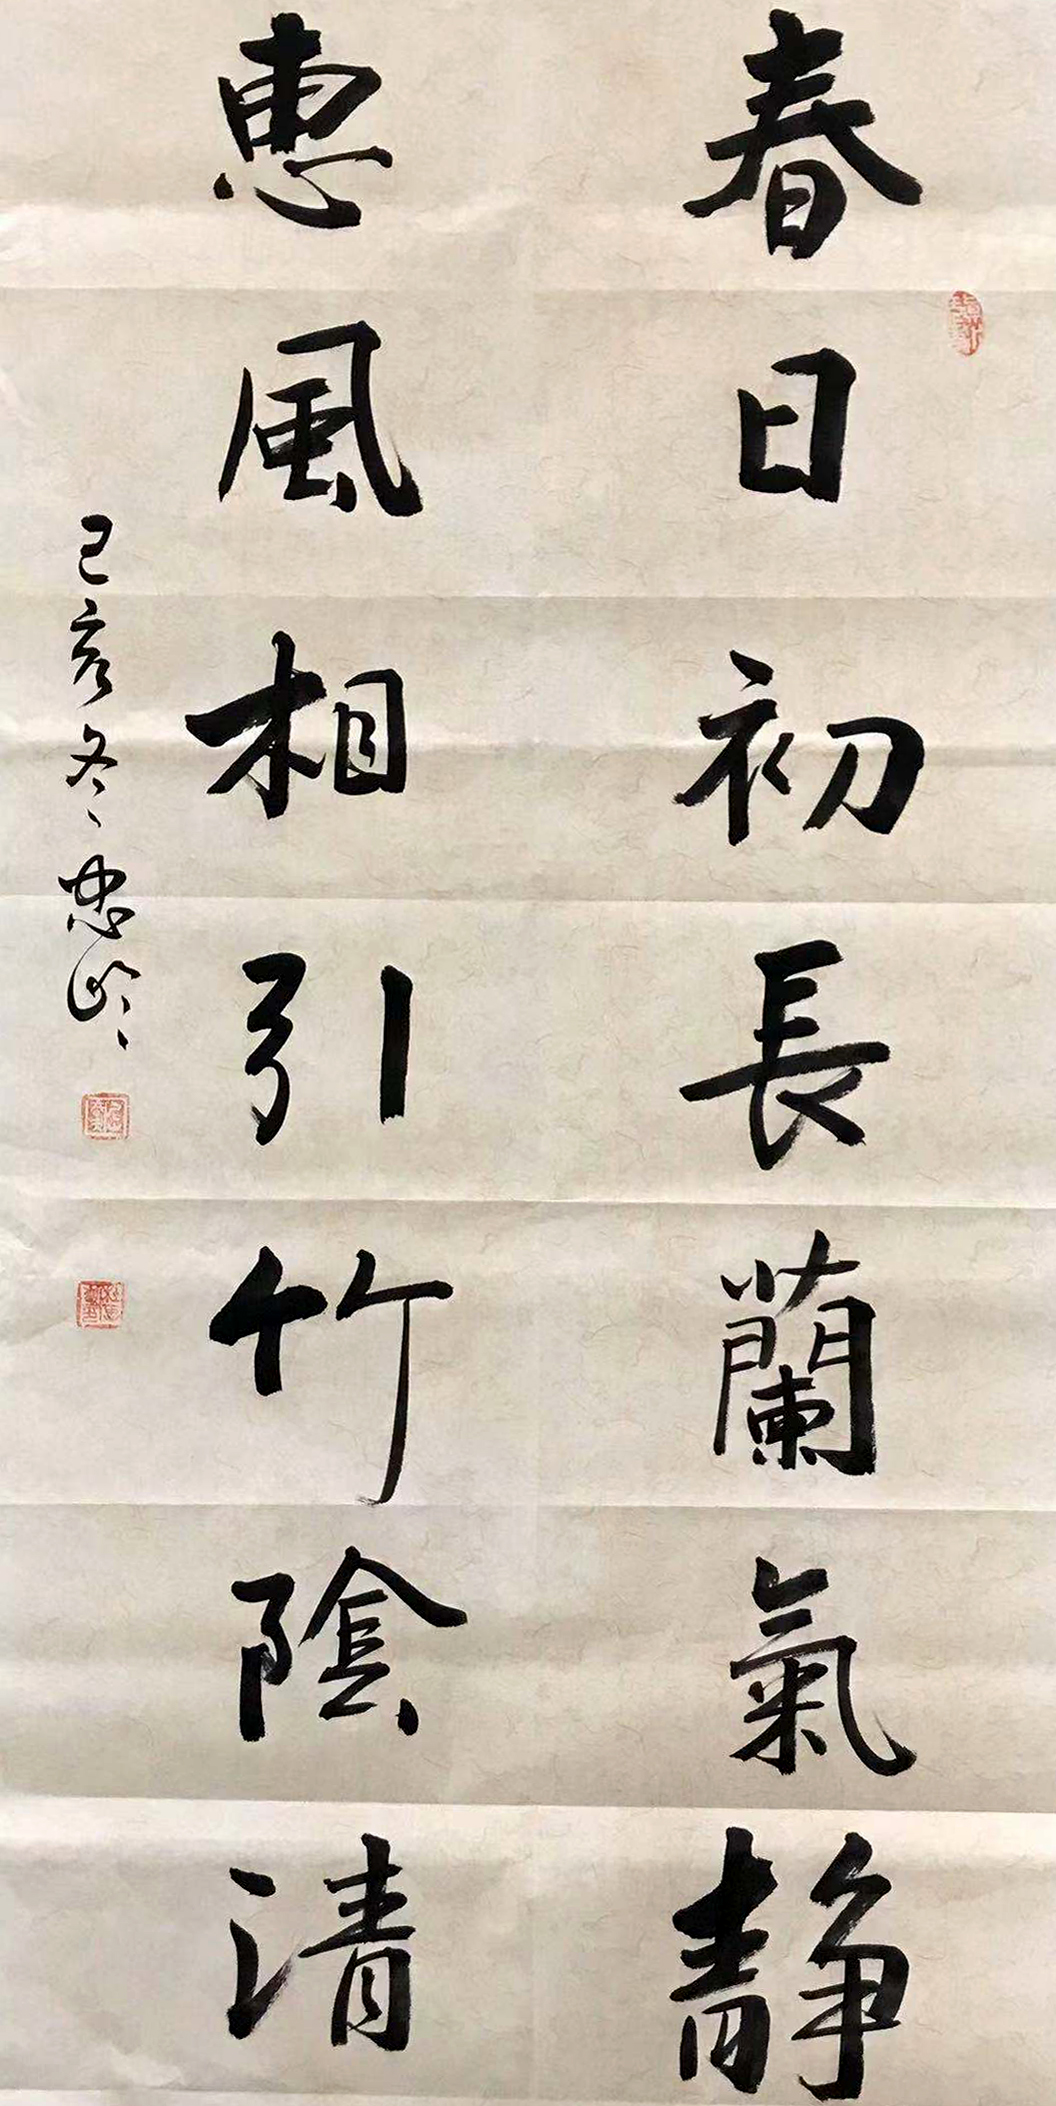 春日初長蘭氣靜
惠風相引竹陰清
己亥冬忠